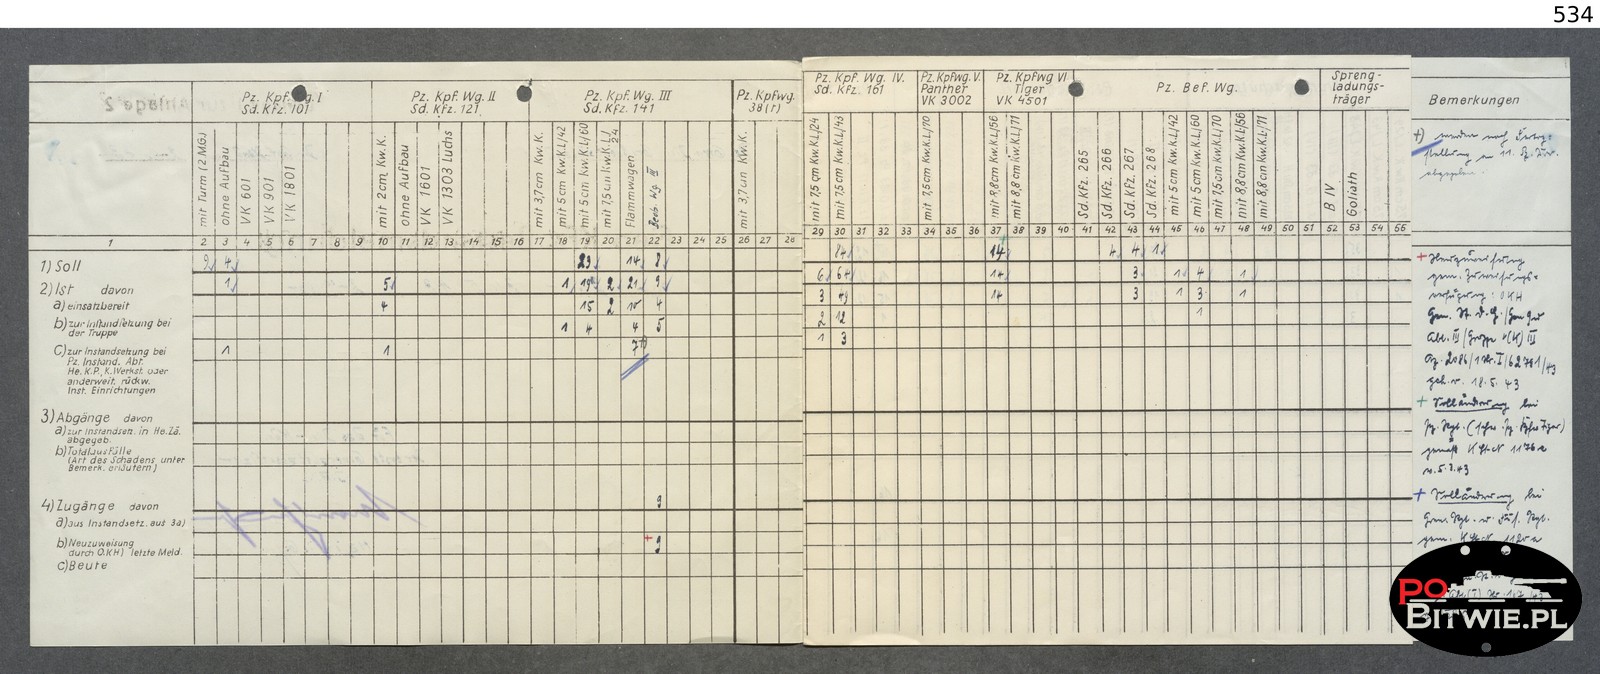 534
Pz. Kpf. Wg. I
Sd. Kfz. 101
Pz. Kpf. Wg. II
Sd. Kfz. 121
Pz. Kpf. Wg. III
Sd. Kfz. 141
Pz. Kpfwg.
38(t)
Pz. Kpf. Wg. IV.
Sd. Kfz. 161
Pz. Kpfwg. V.
Panther
VK 3002
Pz. Kpfwg VI
Tiger
VK 4501
Pz. Bef. Wg.
Spreng-
ladungs-
träger
Bemerkungen
mit Turm (2 M.G.)
ohne Aufbau
VK 601
VK 901
VK 1801
mit 2 cm. Kw. K.
ohne Aufbau
VK 1601
VK 1303 Luchs
mit 3,7 cm Kw. K.
mit 5 cm Kw.K.L/42
mit 5 cm Kw.K.L/60
mit 7,5 cm Kw.K.L/24
Flammwagen
Beob. Wg III
mit 3,7 cm Kw.K.
mit 7,5 cm Kw.K.L/24
mit 7,5 cm Kw.K.L/43
mit 7,5 cm Kw.K.L/70
mit 8,8 cm Kw.K.L/56
mit 8,8 cm Kw.K.L/71
Sd. Kfz. 265
Sd. Kfz. 266
Sd. Kfz. 267
Sd. Kfz. 268
mit 5 cm Kw.K.L/42
mit 5 cm Kw.K.L/60
mit 7,5 cm Kw.K.L/70
mit 8,8 cm Kw.K.L/56
mit 8,8 cm Kw.K.L/71
B IV
Goliath
+) werden nach
1 2 3 4 5 6 7 8 9 10 11 12 13 14 15 16 17 18 19 20 21 22 23 24 25 26 27 28 29 30 31 32 33 34 35 36 37 38 39 40 41 42 43 44 45 46 47 48 49 50 51 52 53 54 55
1) Soll 2 4 23 14 8 84 14 4 4 1
2) Ist davon 1 5 1 19 2 21 9 6 64 14 3 1 4 1
a) einsatzbereit 4 15 2 10 4 3 49 14 3 1 3 1
b) zur Instandsetzung bei
der Truppe 1 4 4 5 2 12 1
c) zur Instandsetzung bei 1 1 7+) 1 3
Pz. Instand. Abt.
He. K.P., K.Werkst. oder
anderweit. rückw.
Inst. Einrichtungen
3) Abgänge davon
a) zur Instandsetz. in He. Zä.
abgegeb.
b) Totalausfälle
(Art des Schadens unter
Bemerk. erläutern)
4) Zugänge davon 9
a) aus Instandsetz. aus 3a)
b) Neuzuweisung + 9
durch O.KH) letzte Meld.
c) Beute
+ Neuzuweisung
gem. Zuweisungs-
verfügung: OKH
Gen. St. d. H./Gen Qu
Abt. III/Gruppe
18.5.43
+ Solländerung bei
Pz. Rgt.
gemäß KStN 1176
v. 5.3.43
+ Solländerung bei
gem. KStN
PO
BITWIE.PL